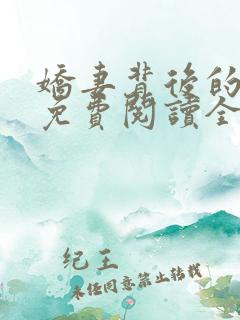 嬌妻背後的
免費閱讀全
纪王
未经同意禁止转载